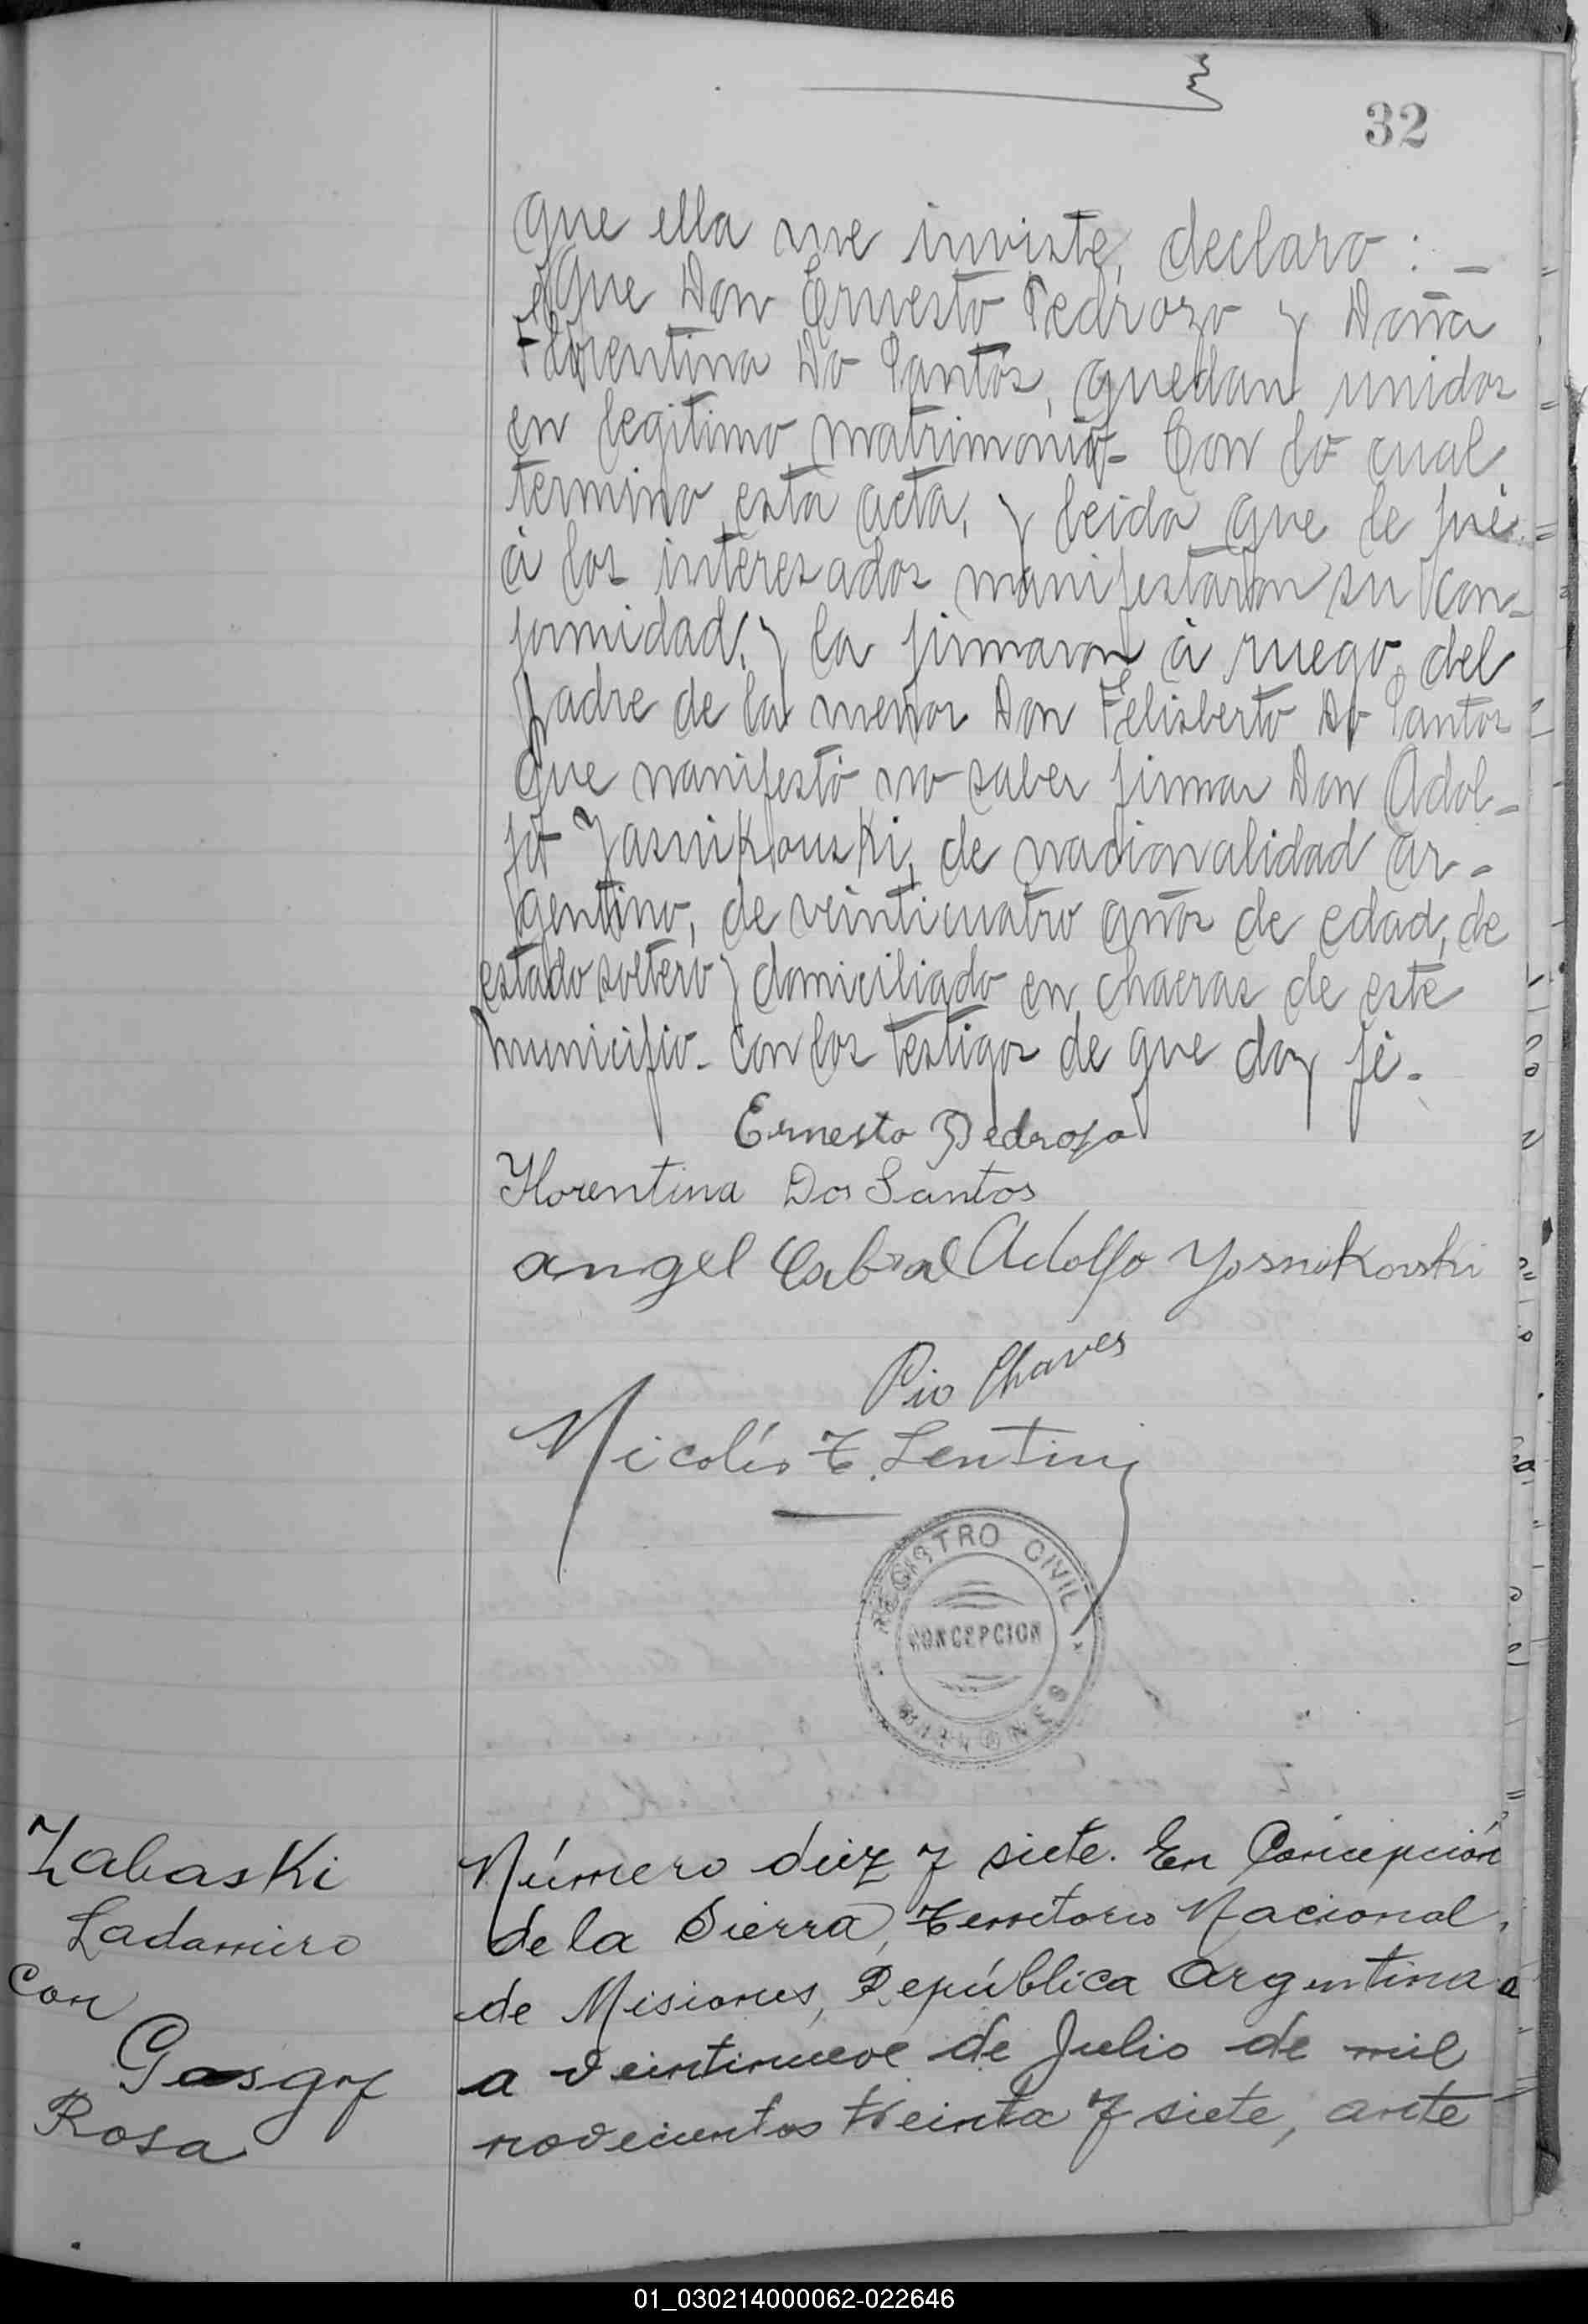 32
que ella me inviste, declaro: —
Que Don Ernesto Pedrozo y Doña
Florentina Do Santos, quedan unidos
en legitimo matrimonio - Con lo cual
termino esta acta, y leida que le fué
á los interesados manifestaron su con-
formidad, y la firmaron á ruego del
padre de la menor Don Felisberto Do Santos
que manifestó no saber firmar Don Adol-
fo Jasnikouski, de nacionalidad ar-
gentino, de veinticuatro años de edad, de
estado soltero y domiciliado en chacras de este
municipio - con los testigos de que doy fé.
Ernesto Pedrozo
Florentina Dos Santos
angel Cabral Adolfo Yasnikowski
Pio Chaves
Nicolás T. Lentini
REGISTRO CIVIL
CONCEPCION
MISIONES
Zabaski
Ladamiro
con
Rosa
Número diez y siete. En Concepción
de la Sierra, Territorio Nacional
de Misiones, República Argentina
a veintinueve de Julio de mil
novecientos treinta y siete, ante
01_030214000062-022646